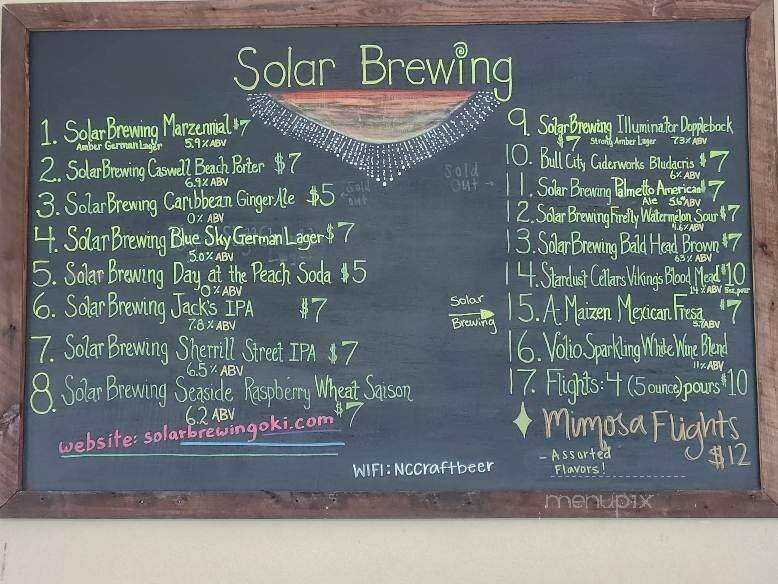 Solar Brewing
1. Solar Brewing Marzennial $7
Amber German Lager 5.9% ABV
2. Solar Brewing Caswell Beach Porter $7
6.9% ABV
3. Solar Brewing Caribbean Ginger Ale $5
← Sold out
0% ABV
4. Solar Brewing Blue Sky German Lager $7
5.0% ABV
5. Solar Brewing Day at the Peach Soda $5
0% ABV
6. Solar Brewing Jack's IPA $7
7.8% ABV
7. Solar Brewing Sherrill Street IPA $7
6.5% ABV
8. Solar Brewing Seaside Raspberry Wheat Saison
6.2 ABV $7
website: solarbrewingoki.com
WIFI: NCCraftbeer
9. Solar Brewing Illuminator Dopplebock
$7 Strong Amber Lager 7.3% ABV
10. Bull City Ciderworks Bludacris $7
6% ABV
Sold out →
11. Solar Brewing Palmetto American $7
Ale 5.6% ABV
12. Solar Brewing Firefly Watermelon Sour $7
4.6% ABV
13. Solar Brewing Bald Head Brown $7
6.3% ABV
14. Stardust Cellars Viking's Blood Mead $10
14% ABV 5oz. pour
Solar Brewing →
15. A-Maizen Mexican Fresa $7
5.7 ABV
16. Volio Sparkling White Wine Blend
11% ABV
17. Flights: 4 (5 ounce) pours $10
Mimosa Flights
$12
- Assorted
Flavors!
menupix